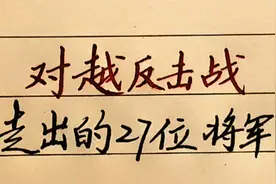 对越反击战
走出的27位将军